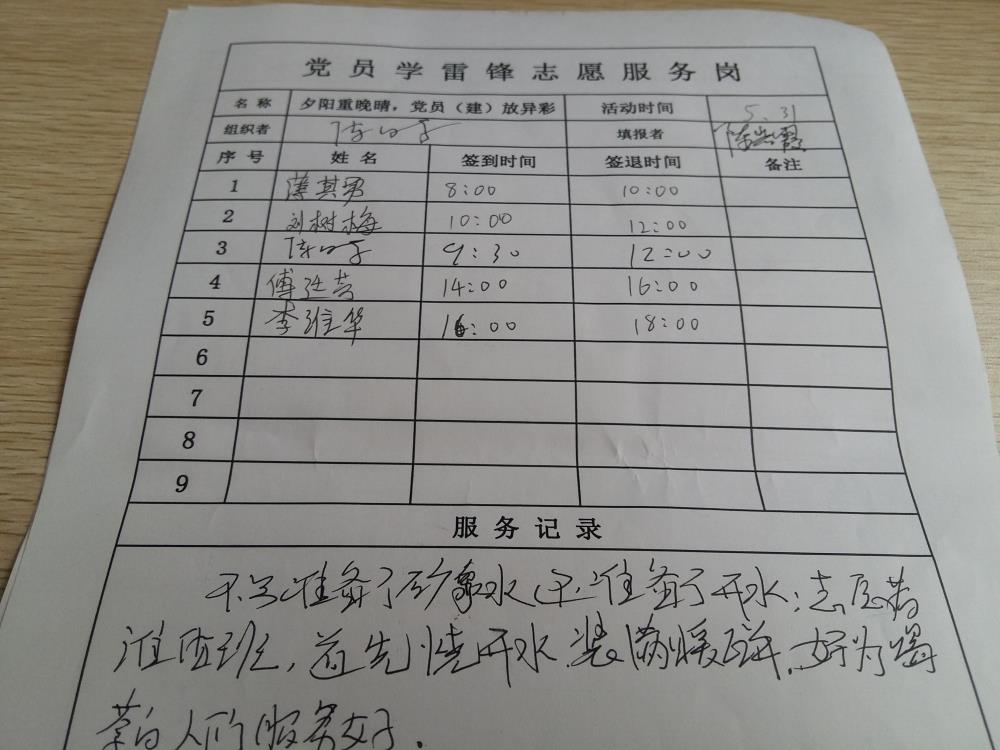 党员学雷锋志愿服务岗
名称 夕阳重晚晴，党员（建）放异彩 活动时间 5.31
组织者 填报者
序号 姓名 签到时间 签退时间 备注
1 薄其男 8:00 10:00
2 刘树梅 10:00 12:00
3 9:30 12:00
4 傅廷芸 14:00 16:00
5 李维华 16:00 18:00
6
7
8
9
服务记录
准备了 水 准备了开水；志愿者
班，首先烧开水装满暖瓶，好为喝
人们服务好．